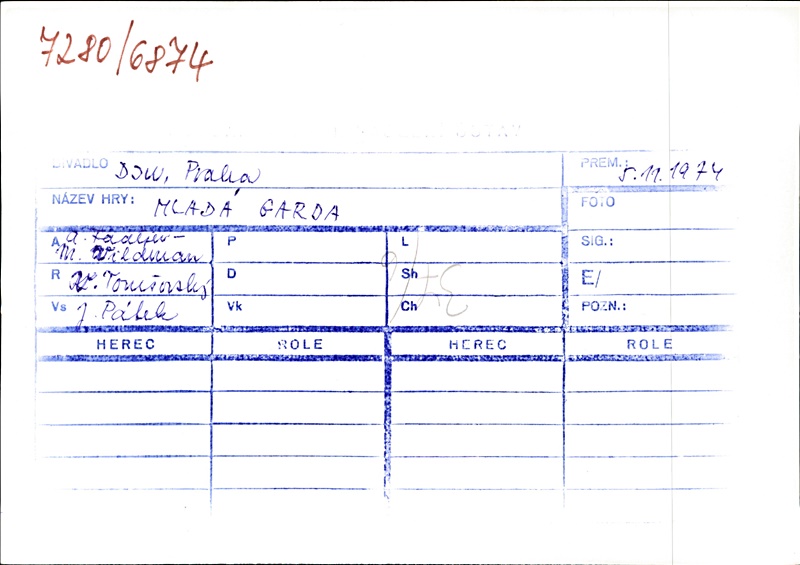 7280/6874
DIVADLO DJW, Praha PREM.: 5.11.1974
NÁZEV HRY: MLADÁ GARDA FOTO
A A. Fadějev- P L SIG.:
M. Wildman
R K. Tomšovský D Sh E/
Vs J. Pátek Vk Ch POZN.:
HEREC ROLE HEREC ROLE